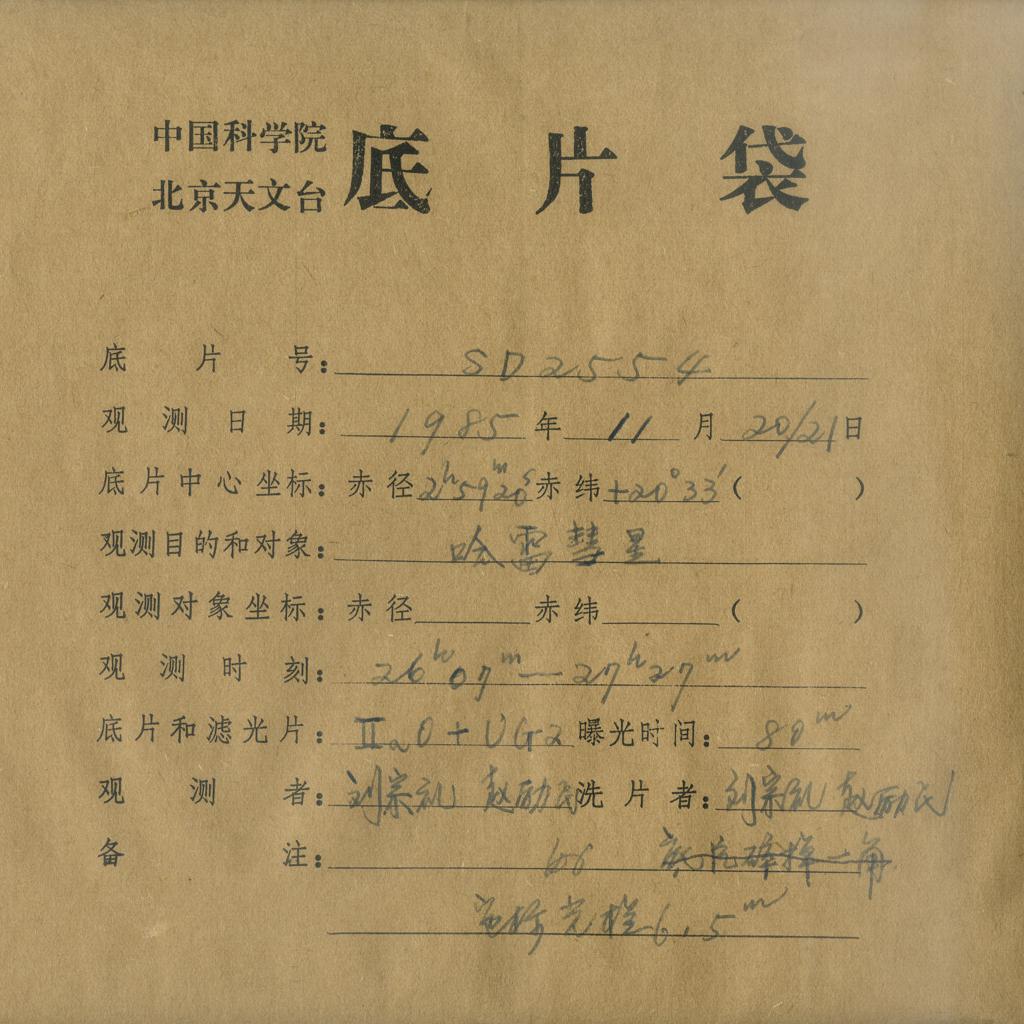 中国科学院
北京天文台 底片袋
底片号：SD2554
观测日期：1985年11月20/21日
底片中心坐标：赤径2h59m20s赤纬+20°33′（ ）
观测目的和对象：哈雷彗星
观测对象坐标：赤径 赤纬 （ ）
观测时刻：26h07m—27h27m
底片和滤光片：IIaO+UG2 曝光时间：80m
观测者：刘宗礼 赵励民 洗片者：刘宗礼 赵励民
备注： 底片碎掉一角
6.5m